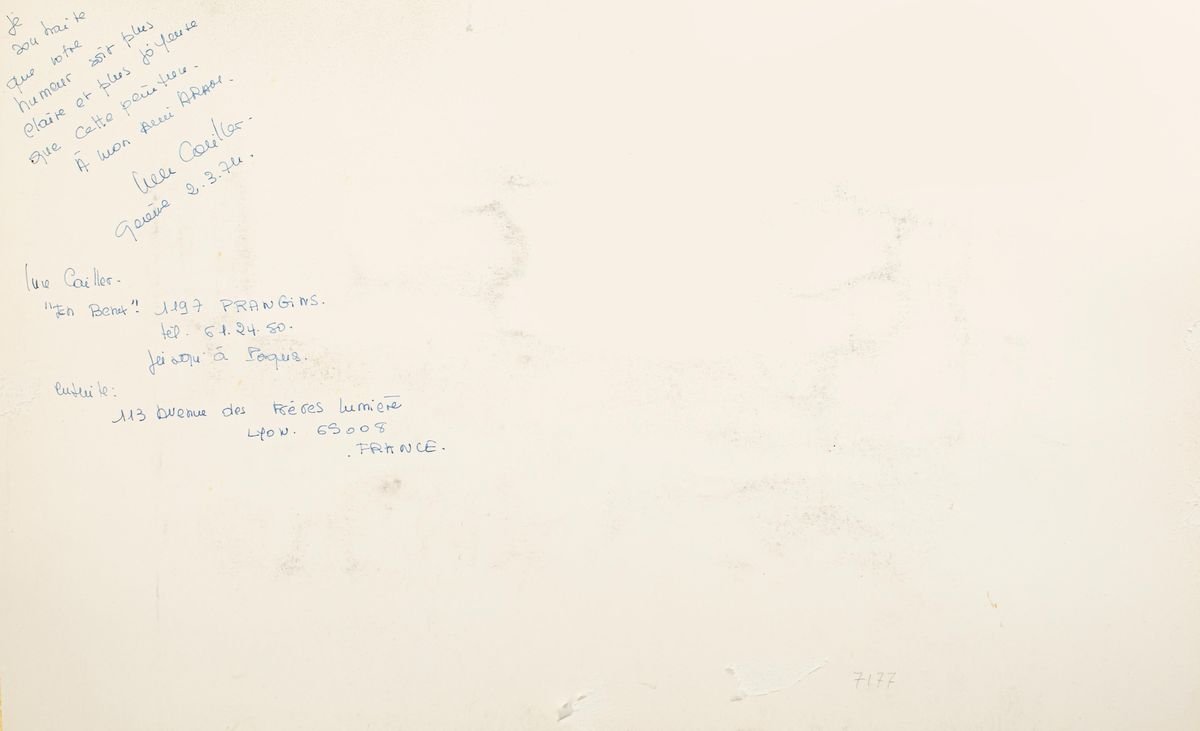 je
souhaite
que votre
humeur soit plus
claire et plus joyeuse
que cette peinture.
À mon ami
Cailler.
Genève 2.3.74.
Cailler.
"En Benex". 1197 PRANGiNS.
tél. 61.24.50.
jusqu'à Paques.
ensuite:
113 Avenue des Frères Lumière
Lyon. 69008
.FRANCE.
7177